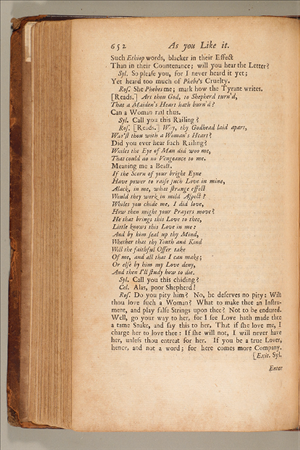 652 As you Like it.
Such Ethiop words, blacker in their Effect
Than in their Countenance; will you hear the Letter?
Syl. So please you, for I never heard it yet;
Yet heard too much of Phebe's Cruelty.
Ros. She Phebes me; mark how the Tyrant writes.
[Reads.] Art thou God, to Shepherd turn'd,
That a Maiden's Heart hath burn'd?
Can a Woman rail thus.
Syl. Call you this Railing?
Ros. [Reads.] Why, thy Godhead laid apart,
War'st thou with a Woman's Heart?
Did you ever hear such Railing?
Whiles the Eye of Man did woo me,
That could do no Vengeance to me.
Meaning me a Beast.
If the Scorn of your bright Eyne
Have power to raise such Love in mine,
Alack, in me, what strange effect
Would they work in mild Aspect?
Whiles you chide me, I did love,
How then might your Prayers move?
He that brings this Love to thee,
Little knows this Love in me:
And by him seal up thy Mind,
Whether that thy Youth and Kind
Will the faithful Offer take
Of me, and all that I can make;
Or else by him my Love deny,
And then I'll study how to die.
Syl. Call you this chiding?
Cel. Alas, poor Shepherd!
Ros. Do you pity him? No, he deserves no pity: Wilt
thou love such a Woman? What to make thee an Instru-
ment, and play false Strings upon thee? Not to be endured.
Well, go your way to her, for I see Love hath made thee
a tame Snake, and say this to her, That if she love me, I
charge her to love thee: If she will not, I will never have
her, unless thou entreat for her. If you be a true Lover,
hence, and not a word; for here comes more Company.
[Exit. Syl.
Enter